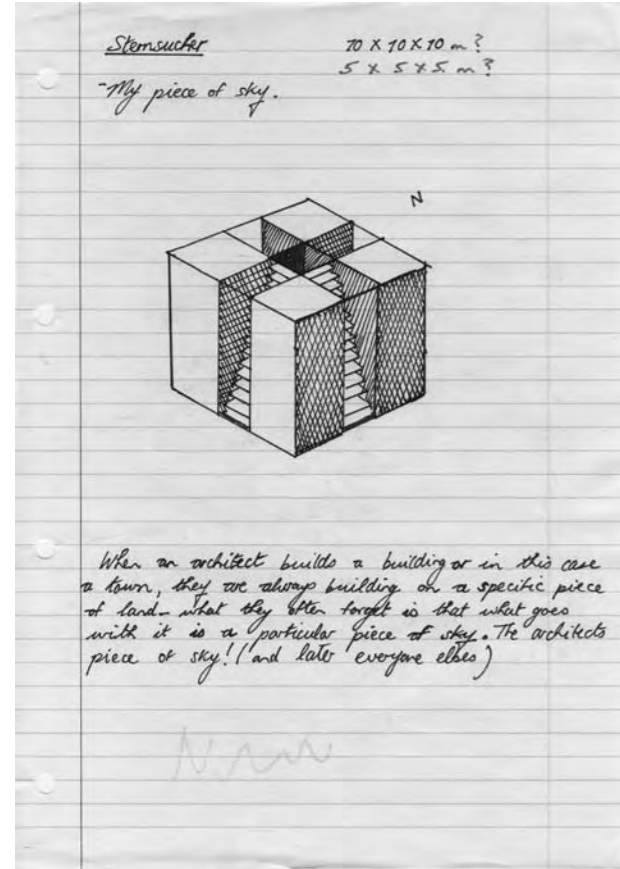 Sternsucher
10 X 10 X 10 m ?
5 X 5 X 5 m ?
-My piece of sky.
N
When an architect builds a building or in this case
a town, they are always building on a specific piece
of land - what they often forget is that what goes
with it is a particular piece of sky. The architects
piece of sky! (and later everyone elses)